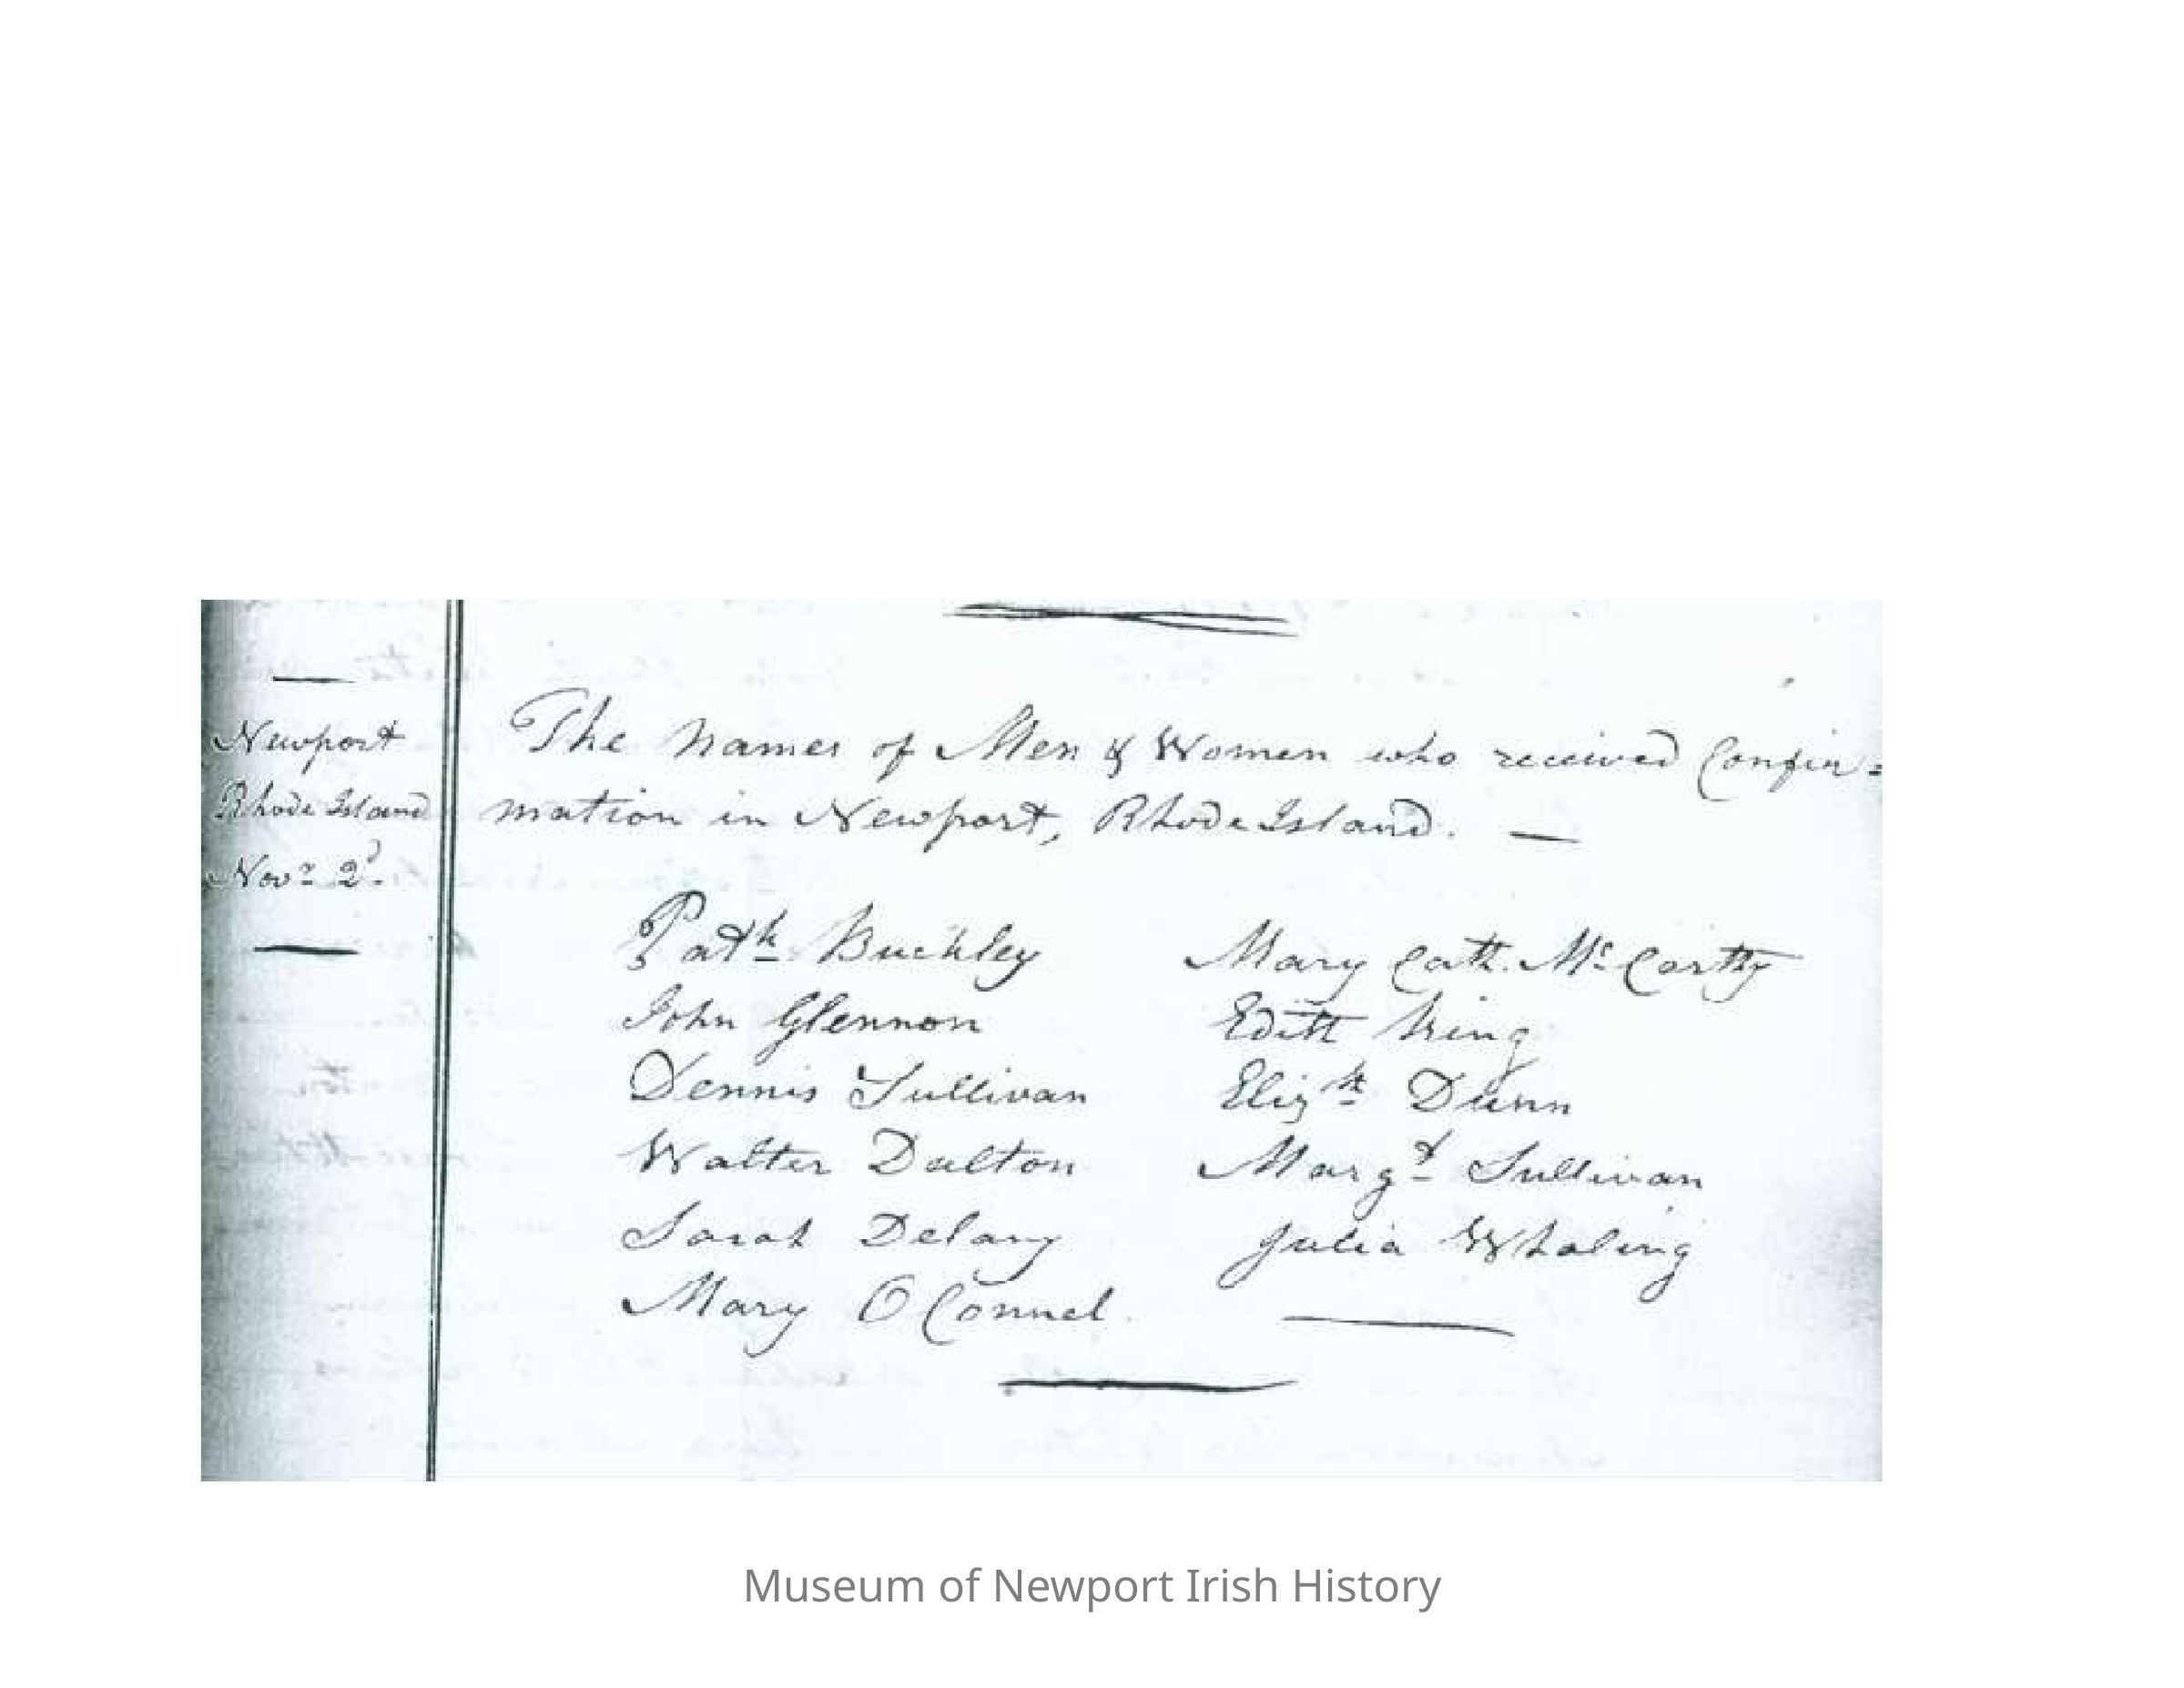 Newport
Rhode Island
Novr 2d.
The Names of Men & Women who received Confir=
mation in Newport, Rhode Island. —
Patk Buckley
John Glennon
Dennis Sullivan
Walter Dalton
Sarah Delany
Mary O Connel.
Mary Cath. Mc Carthy
Edith King
Elizth Dunn
Margt Sullivan
Julia Whaling
Museum of Newport Irish History